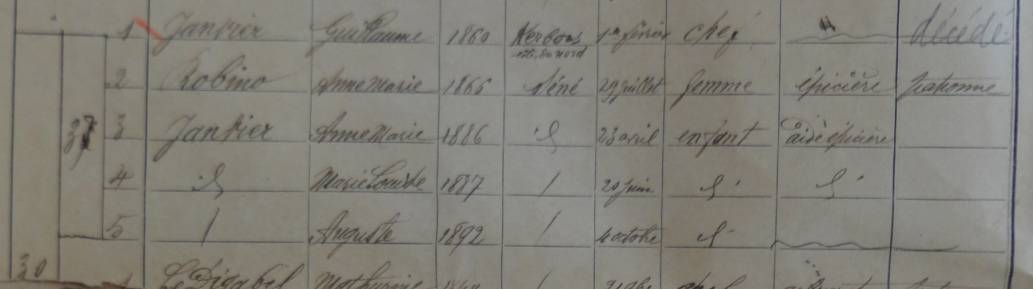 1 Janvier Guillaume 1860 1er février chef " décédé
2 Robino Anne Marie 1866 Séné 29 juillet femme épicière patronne
37 3 Janvier Anne Marie 1886 d 23 avril enfant aide épicière
4 d Marie Louise 1887 / 20 juin d d
5 / Auguste 1892 / 4 octobre d
30 1 Le Digabel Mathurin